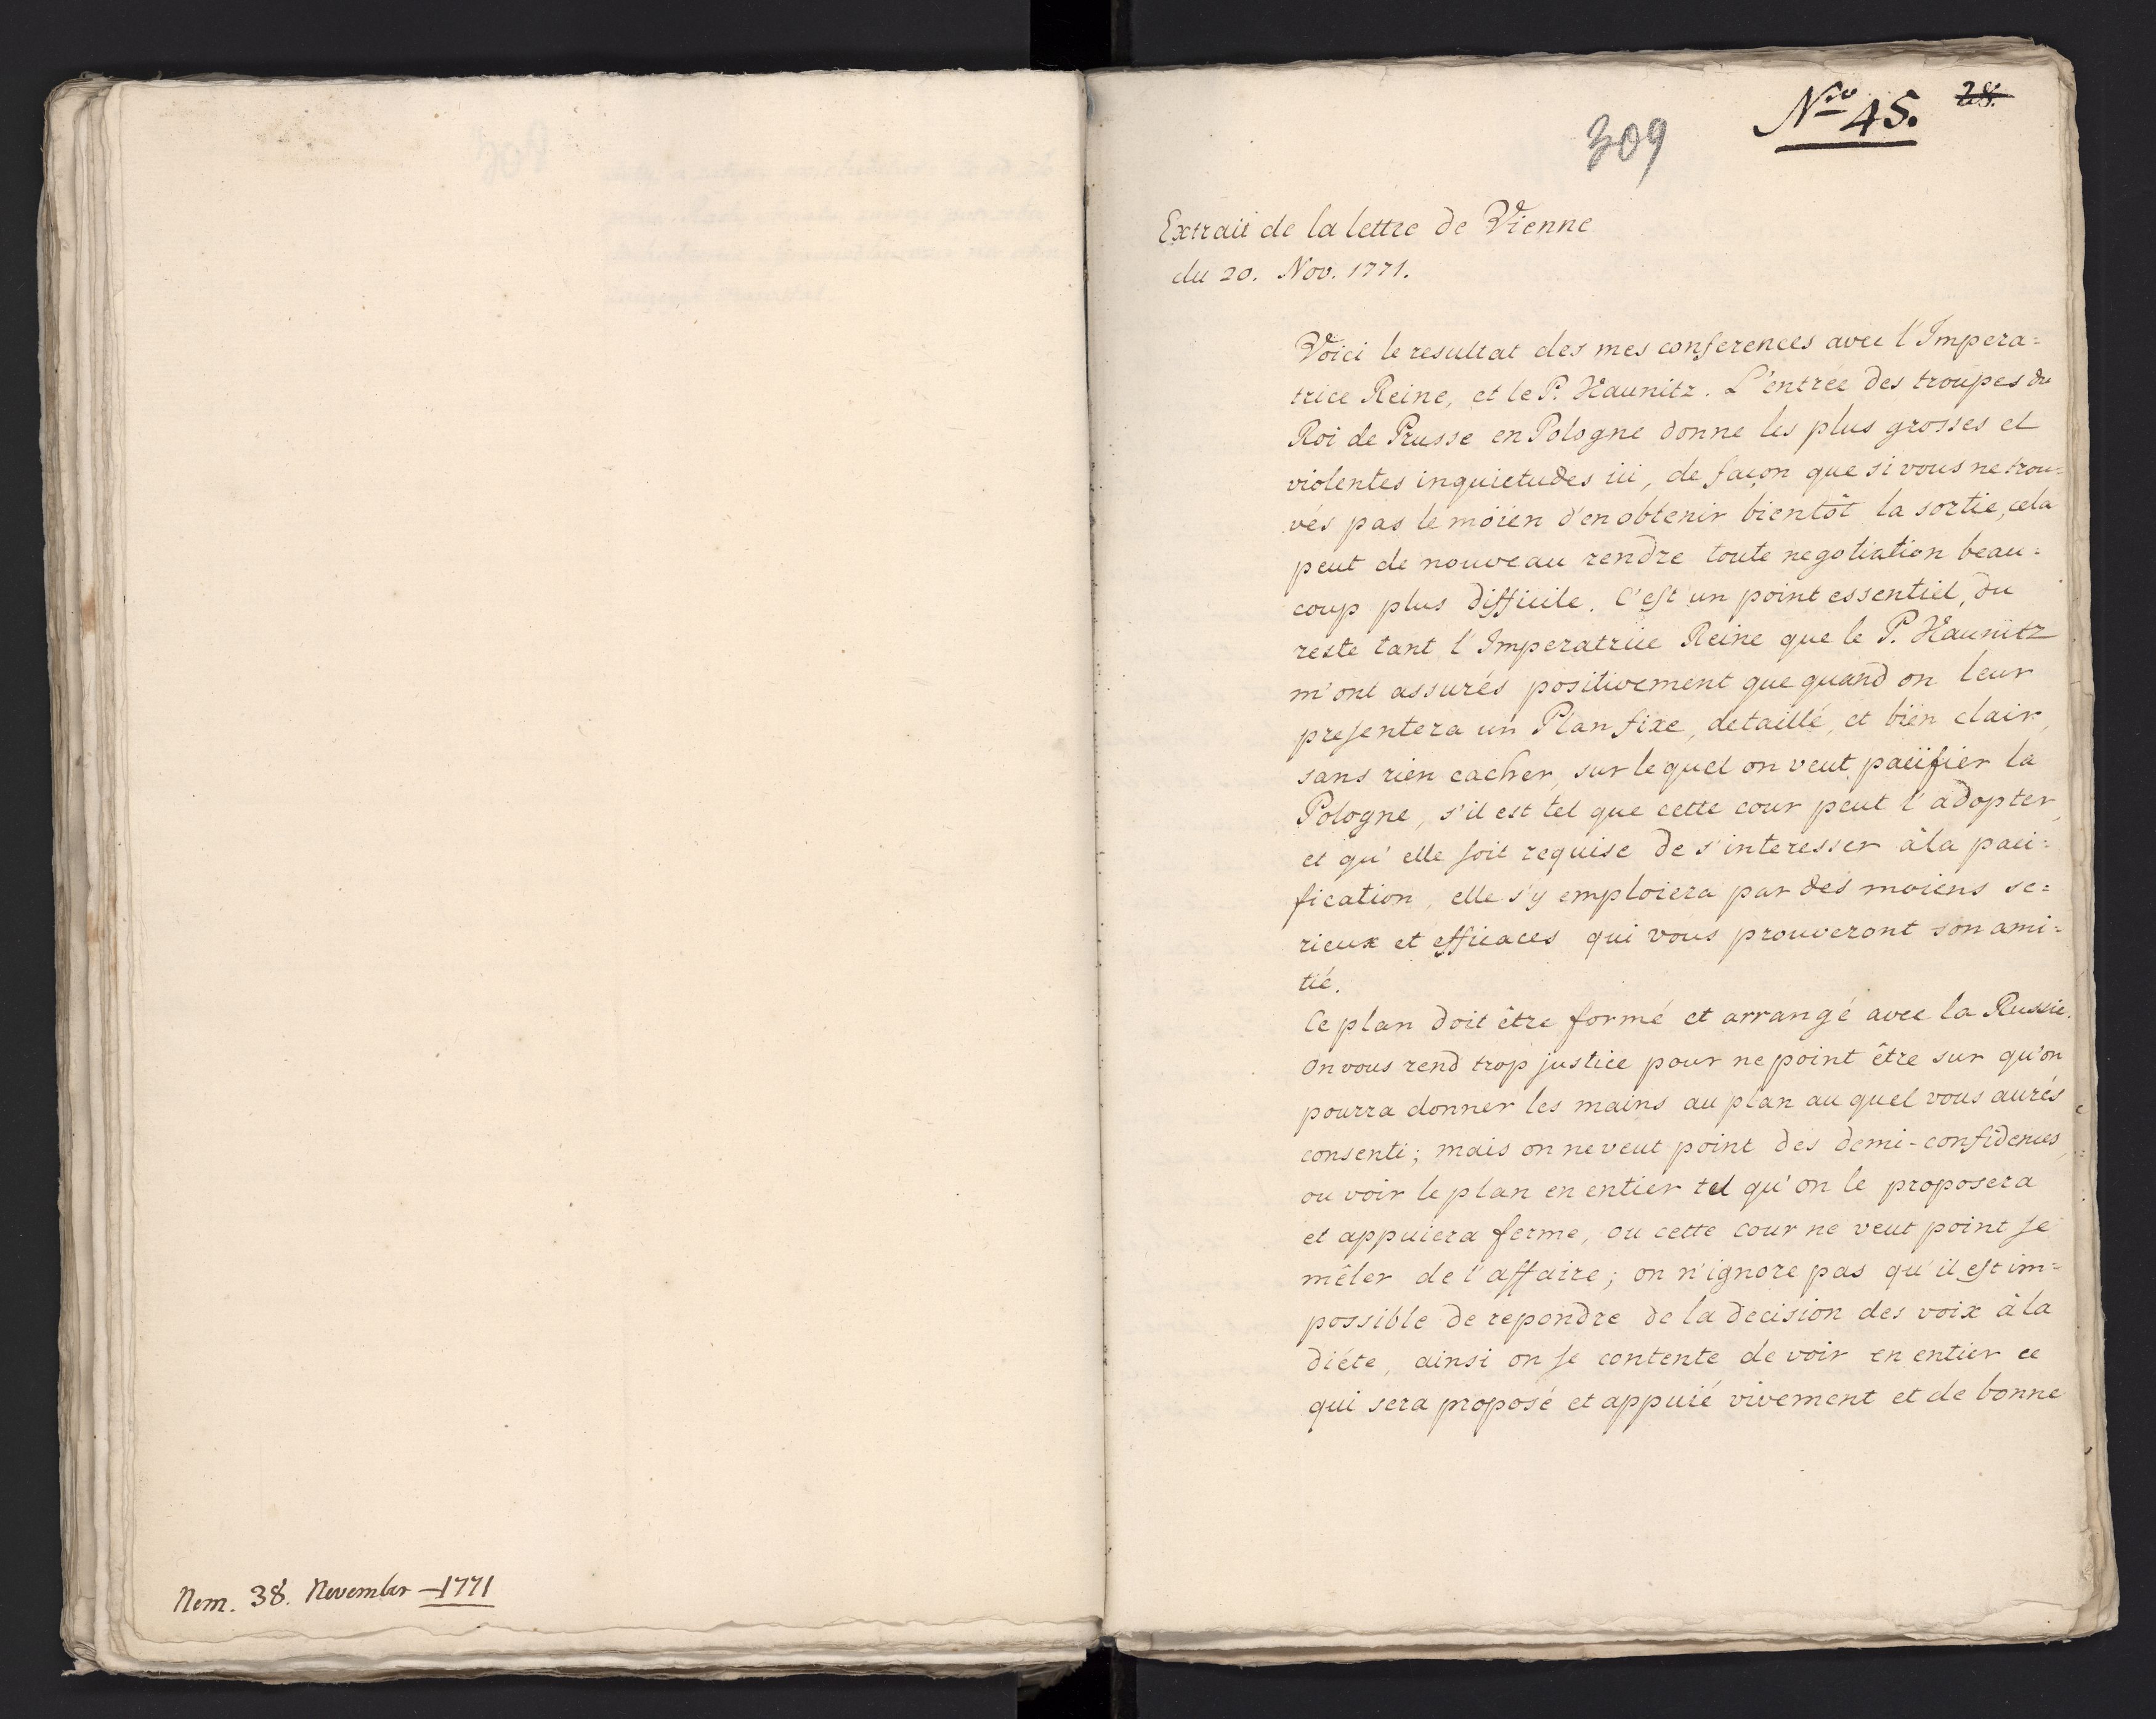 Nem. 38. November — 1771
309
Nro 45. 28.
Extrait de la lettre de Vienne
du 20. Nov. 1771.
Voici le resultat des mes conferences avec l'Impera=
trice Reine, et le P. Kaunitz. L'entrée des troupes du
Roi de Prusse en Pologne donne les plus grosses et
violentes inquietudes ici, de façon que si vous ne trou=
vés pas le moïen d'en obtenir bientôt la sortie, cela
peut de nouveau rendre toute negotiation beau=
coup plus difficile. C'est un point essentiel, du
reste tant l'Imperatrice Reine que le P. Kaunitz
m'ont assurés positivement que quand on leur
presentera un Plan fixe, detaillé, et bien clair,
sans rien cacher, sur le quel on veut pacifier la
Pologne, s'il est tel que cette cour peut l'adopter,
et qu'elle soit requise de s'interesser à la paci=
fication, elle s'y emploiera par des moiens se=
rieux et efficaces qui vous prouveront son ami=
tié.
Ce plan doit être formé et arrangé avec la Russie.
On vous rend trop justice pour ne point être sur qu'on
pourra donner les mains au plan au quel vous aurés
consenti; mais on ne veut point des demi-confidences,
ou voir le plan en entier tel qu'on le proposera
et appuiera ferme, ou cette cour ne veut point se
mêler de l'affaire; on n'ignore pas qu'il est im=
possible de repondre de la decision des voix à la
diéte, ainsi on se contente de voir en entier ce
qui sera proposé et appuié vivement et de bonne